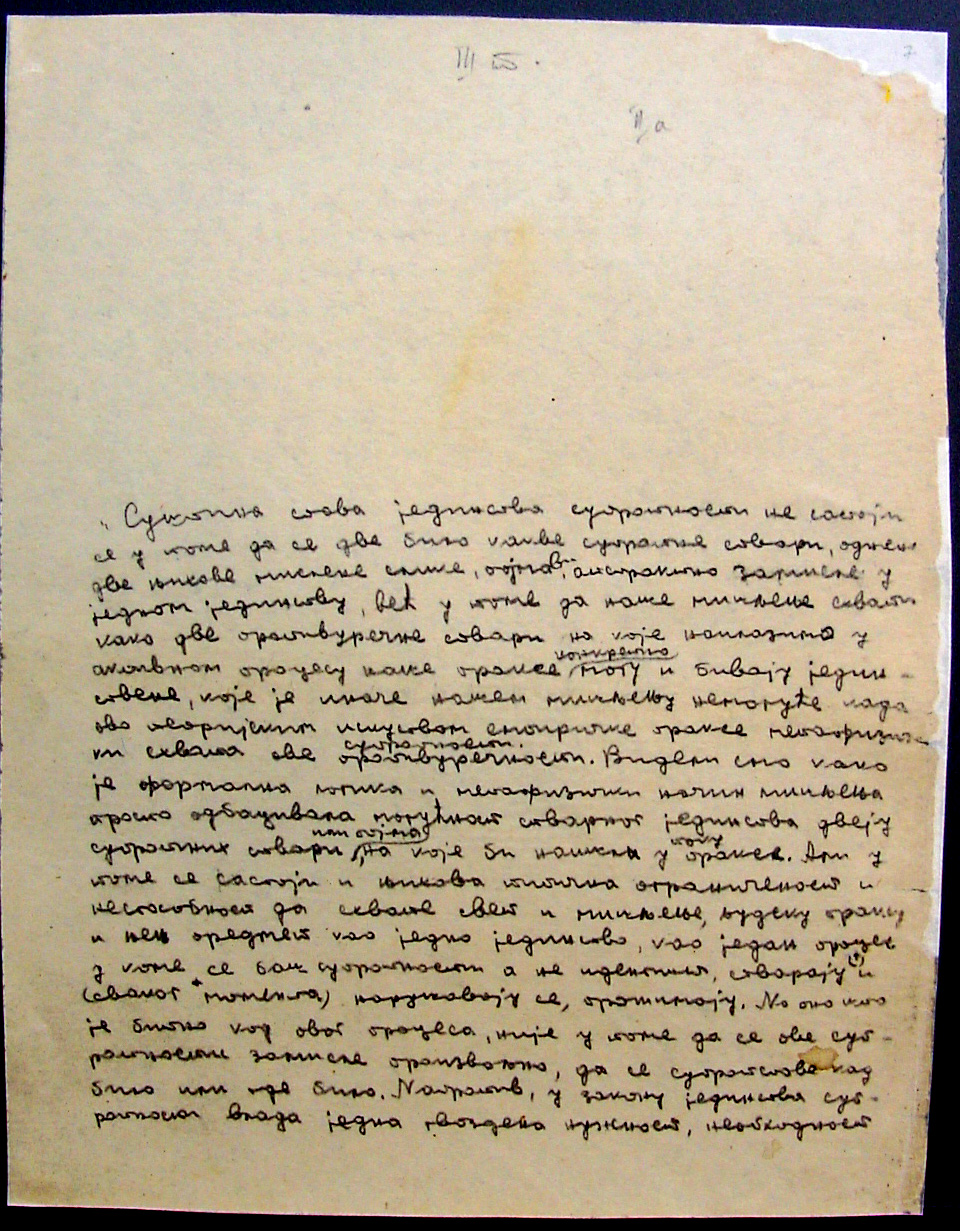 7
III б.
II a
„Суштина става јединства супротности не састоји
се у томе да се две било какве супротне ствари, односно
две њихове мислене слике, појма, апстрактно замисле у
једном јединству, већ у томе да наше мишљење схвати
како две противуречне ствари на које наилазимо у
конкретно
активном процесу наше праксе, могу и бивају једин-
ствене, које је иначе нашем мишљењу немогуће када
ово теоријским искуством емпиријске праксе метафизич
ки схвата све противуречности. Видели смо како
супротности.
је формална логика и метафизички начин мишљења
просто одбацивала могућност стварног јединства двеју
или појма току
супротних ствари, на које би наишла у пракси. Али у
томе се састоји и њихова типична ограниченост и
неспособност да схвате свет и мишљење, људску праксу
и њен предмет као једно јединство, као један процес
у коме се баш супротности а не идентити, стварају и
(сваког момента) нарушавају се, прожимају. No оно што
је битно код овог процеса, није у томе да се ове суп-
ротности замисле произвољно, да се супротстове кад
било или где било. Напротив, у закону јединства суп-
ротности влада једна гвоздена нужност, неопходност